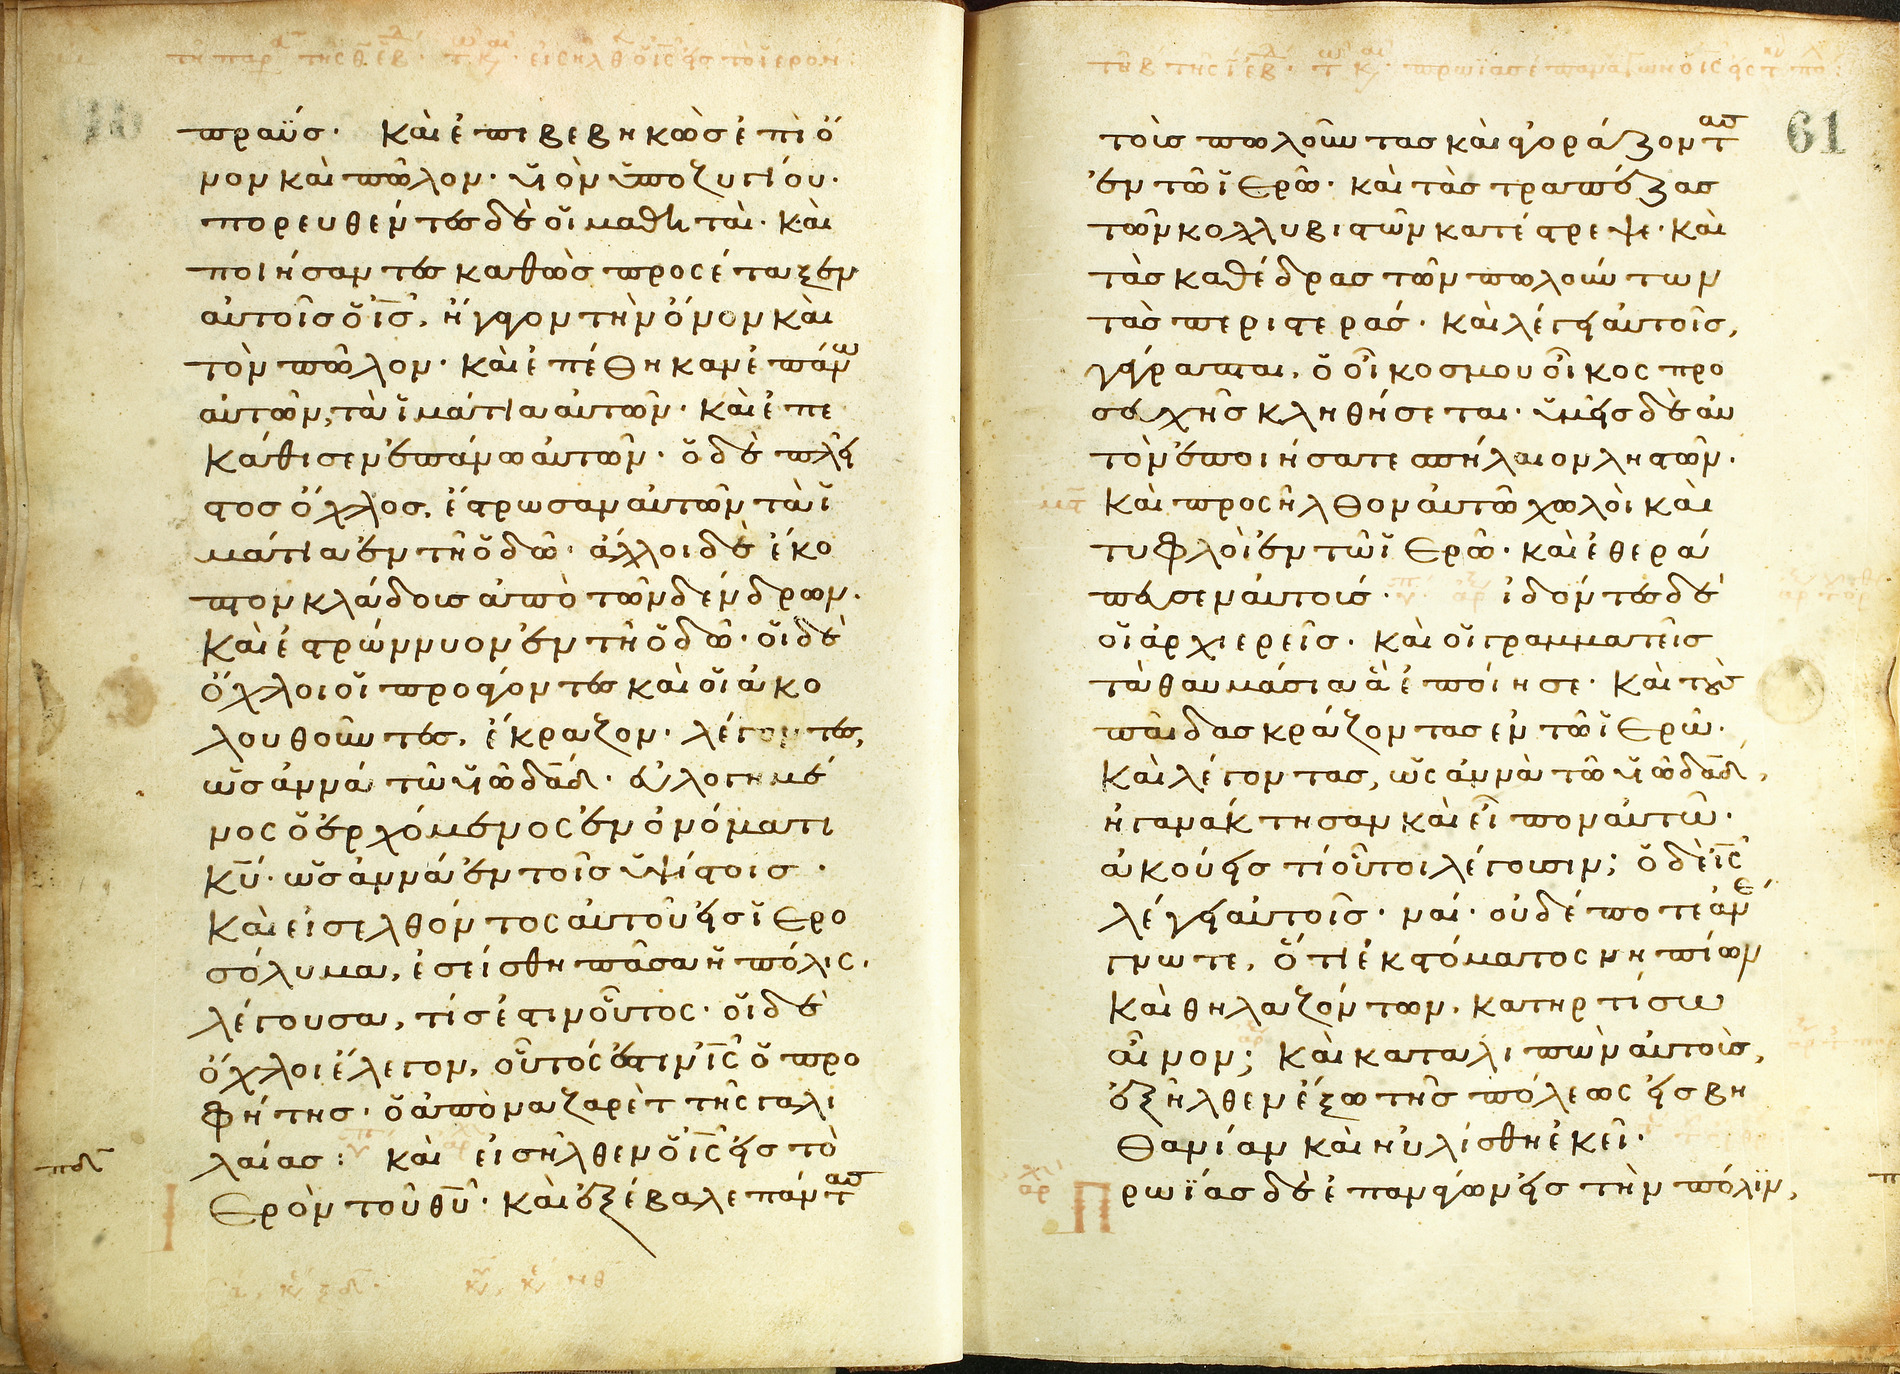 πραΰσ· Καὶ ἐπιβεβηκὼσ ἐπὶ ὄ
νον καὶ πῶλον· υἱὸν ὑποζυγίου·
πορευθέντες δὲ οἱ μαθηταὶ· καὶ
ποιήσαντες καθὼσ προσέταξεν
αὐτοῖσ ὁ ι̅σ̅, ἤγαγον τὴν ὄνον καὶ
τὸν πῶλον· καὶ ἐπέθηκαν ἐπάνω
αὐτῶν, τὰ ἱμάτια αὐτῶν· καὶ ἐπε
κάθισεν ἐπάνω αὐτῶν· ὁ δὲ πλεῖ
στοσ ὄχλοσ, ἔστρωσαν αὐτῶν τὰ ἱ
μάτια ἐν τῇ ὁδῶ· ἄλλοι δὲ ἔκο
πτον κλάδουσ ἀπὸ τῶν δένδρων·
Καὶ ἐστρώννυον ἐν τῇ ὁδῶ· οἱ δὲ
ὄχλοι οἱ προάγοντες καὶ οἱ ἀκο
λουθοῦντες, ἔκραζον· λέγοντες,
ὡσαννά τῶ υἱῶ δα̅δ· εὐλογημέ
νος ὁ ἐρχόμενος ἐν ὀνόματι
κ̅υ̅· ὡσαννά ἐν τοῖσ ὑψίστοισ·
Καὶ εἰσελθόντος αὐτοῦ εἰσ ἱερο
σόλυμα, ἐσείσθη πᾶσα ἡ πόλις.
λέγουσα, τίσ ἐστιν οὗτος· οἱ δὲ
ὄχλοι ἔλεγον, οὗτός ἐστιν ι̅ς̅ ὁ προ
φήτησ· ὁ ἀπὸ ναζαρὲτ τῆς γαλι
λαίασ: καὶ εἰσῆλθεν ὁ ι̅ς̅ εἰσ τὸ
ἱερὸν τοῦ θ̅υ̅· καὶ ἐξέβαλε πάντασ
61
τοὺσ πωλοῦντασ καὶ ἀγοράζοντασ
ἐν τῶ ἱερῶ· καὶ τὰσ τραπέζασ
τῶν κολλυβιστῶν κατέστρεψε· καὶ
τὰσ καθέδρασ τῶν πωλούντων
τὰσ περιστεράσ· Καὶ λέγει αὐτοῖσ,
γέγραπται, ὁ οἶκοσ μου οἶκος προ
σευχῆσ κληθήσεται· ὑμεῖσ δὲ αὐ
τὸν ἐποιήσατε σπήλαιον ληστῶν.
Καὶ προσῆλθον αὐτῶ χωλοὶ καὶ
τυφλοὶ ἐν τῶ ἱερῶ· καὶ ἐθερά
πευσεν αὐτούσ· ἰδόντες δὲ
οἱ ἀρχιερεῖσ· Καὶ οἱ γραμματεῖσ
τὰ θαυμάσια ἃ ἐποίησε· Καὶ τοὺσ
παῖδασ κράζοντασ ἐν τῶ ἱερῶ·
Καὶ λέγοντασ, ὡς ἀννὰ τῶ υἱῶ δα̅δ,
ἠγανάκτησαν καὶ εἶπον αὐτῶ·
ἀκούεισ τί οὗτοι λέγουσιν; ὁ δὲ ι̅ς̅
λέγει αὐτοῖσ· ναί· οὐδέποτε ἀνέ
γνωτε, ὅτι ἐκ στόματος νηπίων
Καὶ θηλαζόντων, κατηρτίσω
αἶνον; Καὶ καταλιπὼν αὐτοὺσ,
ἐξῆλθεν ἔξω τῆσ πόλεως εἰσ βη
θανίαν καὶ ηὐλίσθη ἐκεῖ·
Πρωΐασ δὲ ἐπανάγων εἰσ τὴν πόλιν,